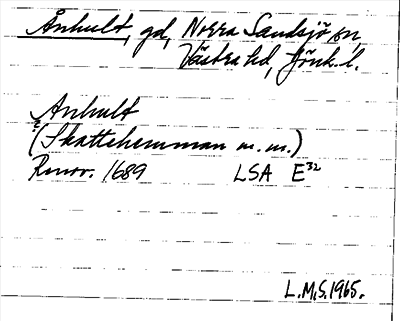 Ånhult, gd, Norra Sandsjö sn,
Västra hd, Jönk. l.
Anhult
(Skattehemman m.m.)
Renov. 1689 LSA E32
L.M.S. 1965.